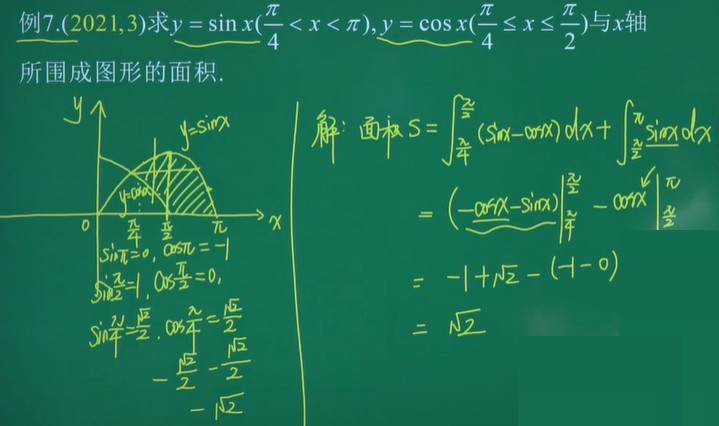 例7.(2021,3)求y = sin x(π/4 < x < π), y = cos x(π/4 ≤ x ≤ π/2)与x轴
所围成图形的面积.
y
y=sinx
y=cosx
0 π/4 π/2 π x
sinπ=0, cosπ=-1
sin π/2=1, cos π/2=0,
sin π/4=√2/2, cos π/4=√2/2
-√2/2 -√2/2
-√2
解: 面积 S = ∫_{π/4}^{π/2} (sinx-cosx)dx + ∫_{π/2}^{π} sinx dx
= (-cosx-sinx)|_{π/4}^{π/2} - cosx|_{π/2}^{π}
= -1+√2-(-1-0)
= √2